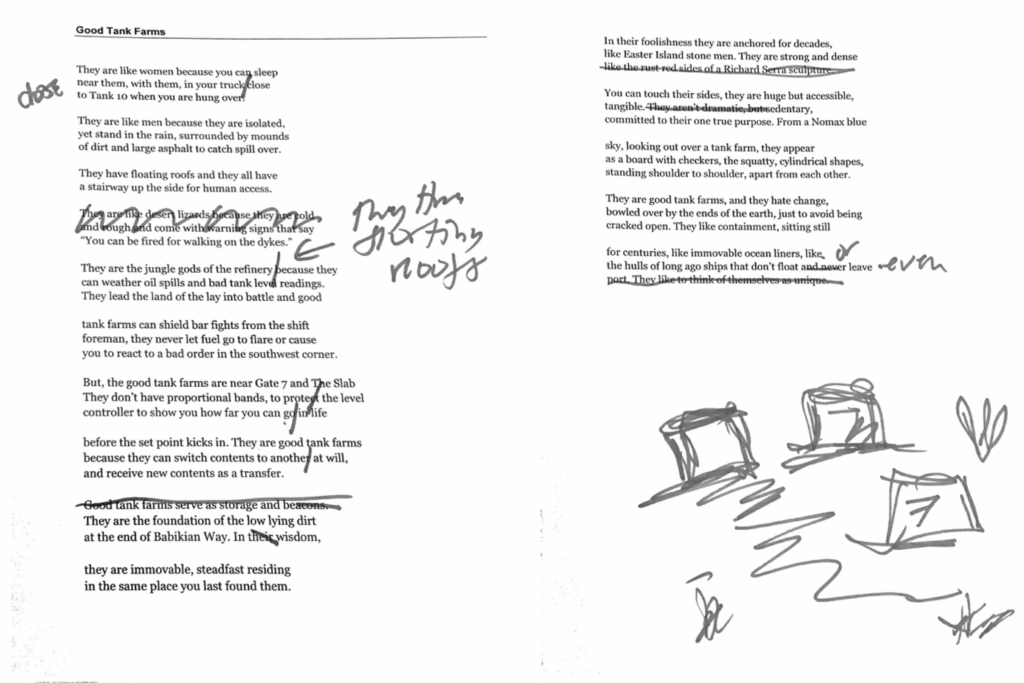 Good Tank Farms
They are like women because you can sleep
near them, with them, in your truck close
close
to Tank 10 when you are hung over.
They are like men because they are isolated,
yet stand in the rain, surrounded by mounds
of dirt and large asphalt to catch spill over.
They have floating roofs and they all have
a stairway up the side for human access.
They are like desert lizards because they are cold
and rough and come with warning signs that say
"You can be fired for walking on the dykes."
roofs
They are the jungle gods of the refinery because they
can weather oil spills and bad tank level readings.
They lead the land of the lay into battle and good
tank farms can shield bar fights from the shift
foreman, they never let fuel go to flare or cause
you to react to a bad order in the southwest corner.
But, the good tank farms are near Gate 7 and The Slab
They don't have proportional bands, to protect the level
controller to show you how far you can go in life
before the set point kicks in. They are good tank farms
because they can switch contents to another at will,
and receive new contents as a transfer.
Good tank farms serve as storage and beacons.
They are the foundation of the low lying dirt
at the end of Babikian Way. In their wisdom,
they are immovable, steadfast residing
in the same place you last found them.
In their foolishness they are anchored for decades,
like Easter Island stone men. They are strong and dense
like the rust red sides of a Richard Serra sculpture.
You can touch their sides, they are huge but accessible,
tangible. They aren't dramatic, but sedentary,
committed to their one true purpose. From a Nomax blue
sky, looking out over a tank farm, they appear
as a board with checkers, the squatty, cylindrical shapes,
standing shoulder to shoulder, apart from each other.
They are good tank farms, and they hate change,
bowled over by the ends of the earth, just to avoid being
cracked open. They like containment, sitting still
for centuries, like immovable ocean liners, like or
the hulls of long ago ships that don't float and never leave even
port. They like to think of themselves as unique.
7